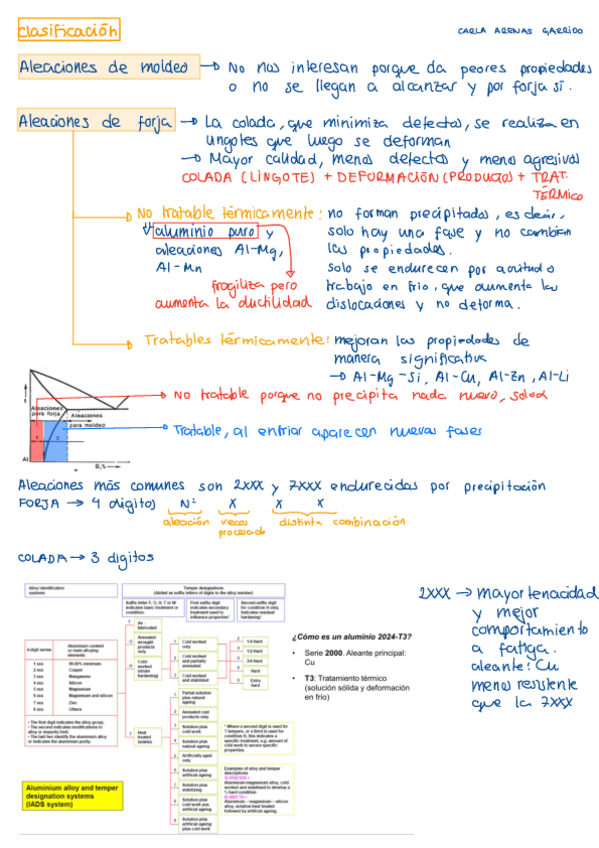 Clasificación
CARLA ARENAS GARRIDO
Aleaciones de moldeo → No nos interesan porque da peores propiedades
o no se llegan a alcanzar y por forja sí.
Aleaciones de forja → La colada, que minimiza defectos, se realiza en
lingotes que luego se deforman
→ Mayor calidad, menos defectos y menos agresivos
COLADA (LINGOTE) + DEFORMACIÓN (PRODUCTO) + TRAT.
TÉRMICO
No tratable térmicamente: no forman precipitados, es decir,
aluminio puro y solo hay una fase y no cambian
aleaciones Al-Mg, las propiedades.
Al-Mn solo se endurecen por acritud o
fragiliza pero trabajo en frío, que aumenta las
aumenta la ductilidad dislocaciones y no deforma.
Tratables térmicamente: mejoran las propiedades de
manera significativa
→ Al-Mg-Si, Al-Cu, Al-Zn, Al-Li
Aleaciones para forja
Aleaciones para moldeo
Al
B,%
No tratable porque no precipita nada nuevo, solo α
Tratable, al enfriar aparecen nuevas fases
Aleaciones más comunes son 2XXX y 7XXX endurecidas por precipitación
FORJA → 4 dígitos Nº X X X
aleación veces procesado distinta combinación
COLADA → 3 dígitos
Alloy identification systems
Temper designations
(Added as suffix letters of digits to the alloy number)
Suffix letter F, O, H, T or W indicates basic treatment or condition.
First suffix digit indicates secondary treatment used to influence properties
Second suffix digit for condition H only indicates residual hardening
4-digit series
Aluminium content or main alloying elements
1 xxx 99.00% minimum
2 xxx Copper
3 xxx Manganese
4 xxx Silicon
5 xxx Magnesium
6 xxx Magnesium and silicon
7 xxx Zinc
8 xxx Others
• The first digit indicates the alloy group.
• The second indicates modifications to alloy or impurity limit.
• The last two identify the aluminium alloy or indicates the aluminium purity.
F As - fabricated
O Annealed-wrought products only
H Cold worked (strain hardening)
T Heat treated (stable)
1 Cold worked only
2 Cold worked and partially annealed
3 Cold worked and stabilized
Hard
Extra hard
1 Partial solution plus natural ageing
2 Annealed cast products only
3 Solution plus cold work
4 Solution plus natural ageing
5 Artificially aged only
6 Solution plus artificial ageing
7 Solution plus stabilizing
8 Solution plus cold work plus artificial ageing
9 Solution plus artificial ageing plus cold work
Examples of alloy and temper descriptions
Aluminium alloy and temper
designation systems
(IADS system)
¿Cómo es un aluminio 2024-T3?
• Serie 2000. Aleante principal:
Cu
• T3: Tratamiento térmico
(solución sólida y deformación
en frío)
2XXX → mayor tenacidad
y mejor
comportamiento
a fatiga.
aleante: Cu
menos resistente
que la 7XXX